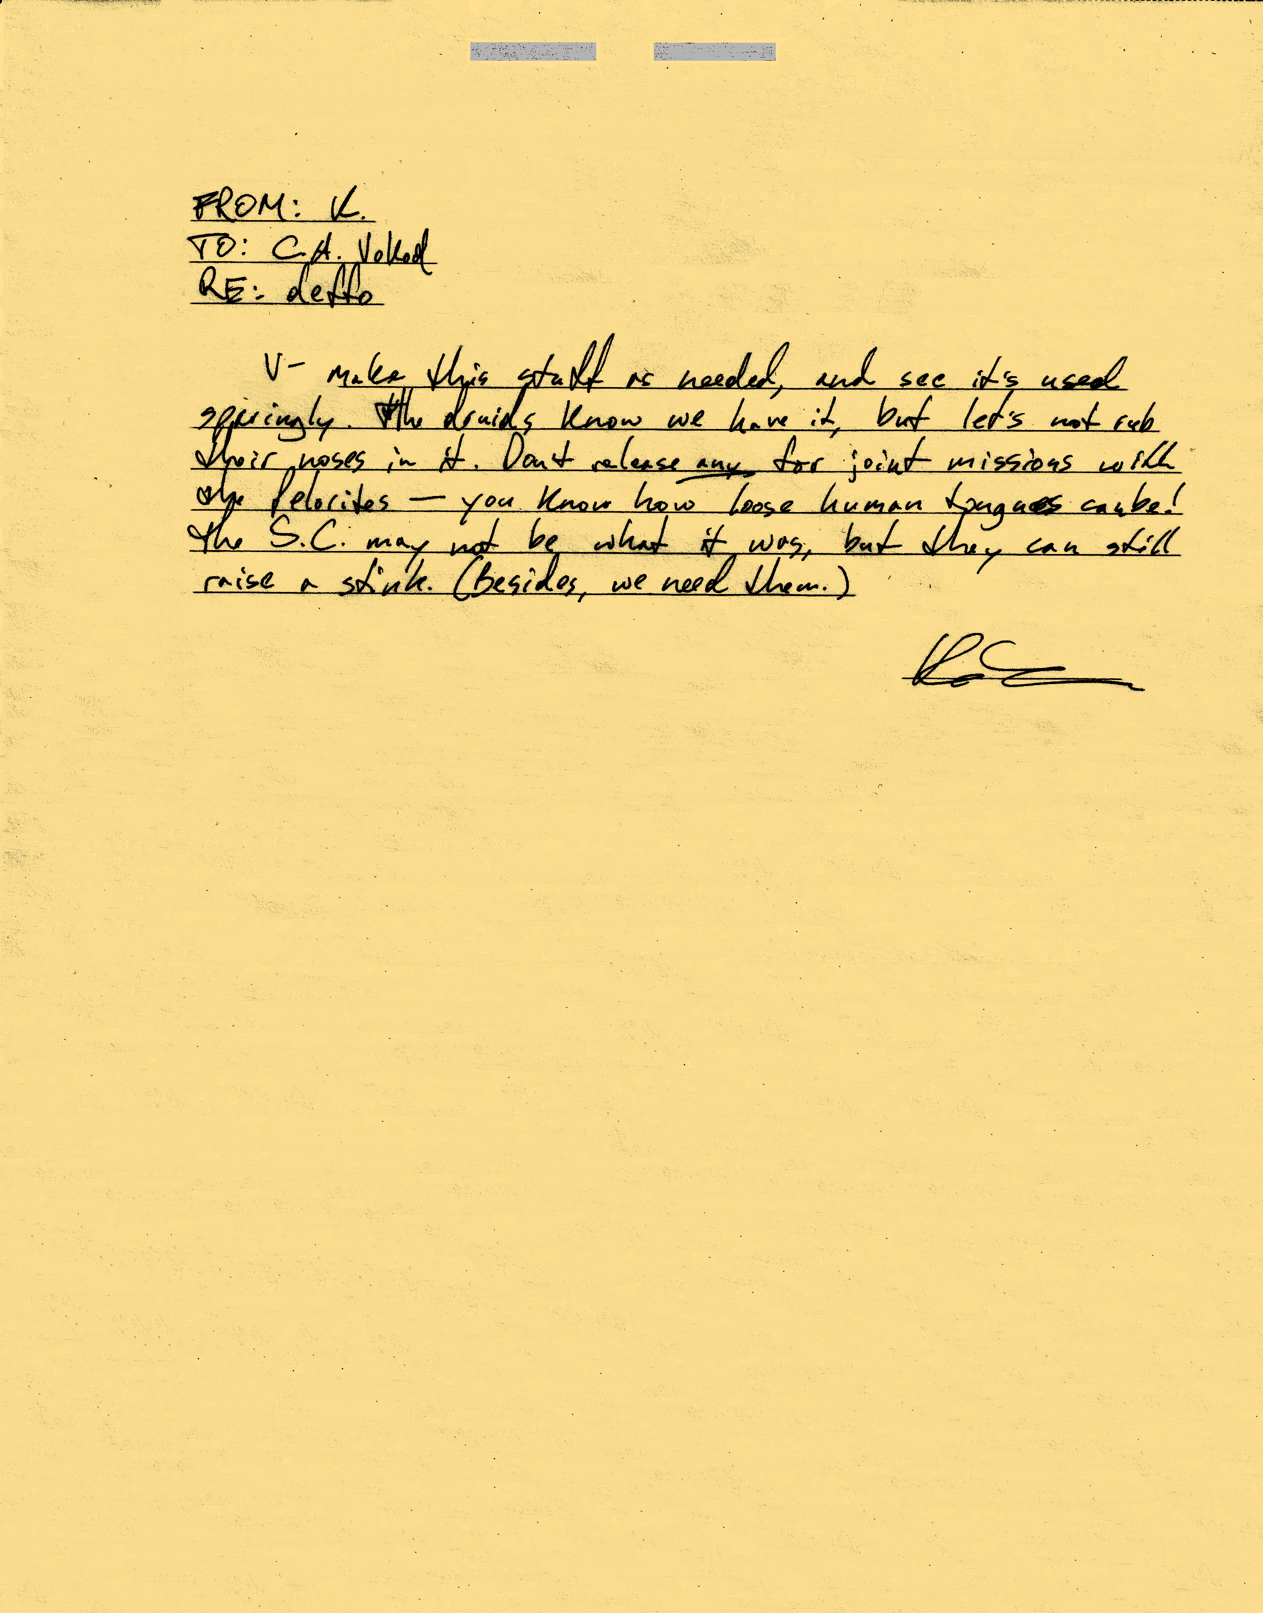 FROM: K.
TO: C.A. Vokod
RE: deffo
V- make this stuff as needed, and see it's used
sparingly. The druids know we have it, but let's not rub
their noses in it. Don't release any for joint missions with
the Pelorites — you know how loose human tongues can be!
The S.C. may not be what it was, but they can still
raise a stink. (Besides, we need them.)